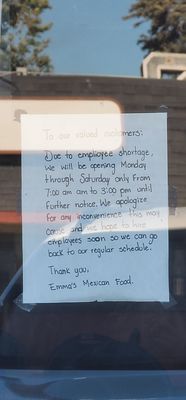 To our valued customers:
Due to employee shortage,
we will be opening Monday
through Saturday only from
7:00 am am to 3:00 pm until
further notice. We apologize
for any inconvenience this may
cause and we hope to hire
employees soon so we can go
back to our regular schedule.
Thank you,
Emma's Mexican Food.